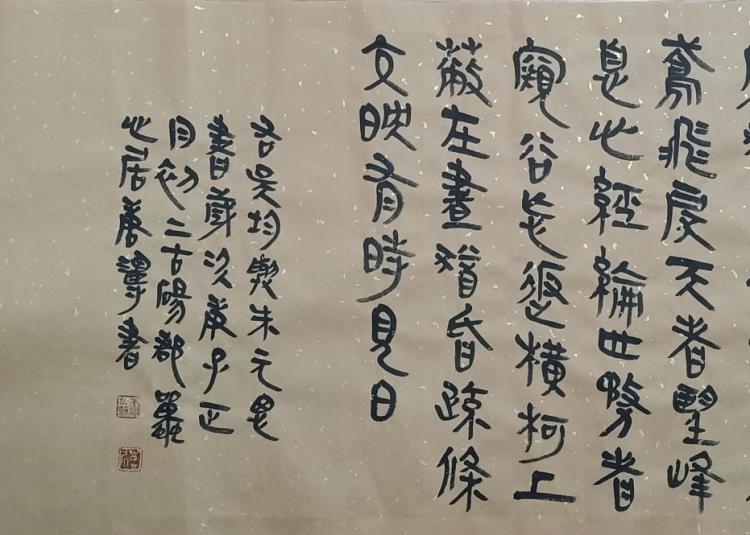 鳶飛戾天者望峰
息心經綸世務者
窺谷忘返橫柯上
蔽在晝猶昏疏條
交映有時見日
右吳均與朱元思
書歲次庚子正
月初二古碭郡
心居 書